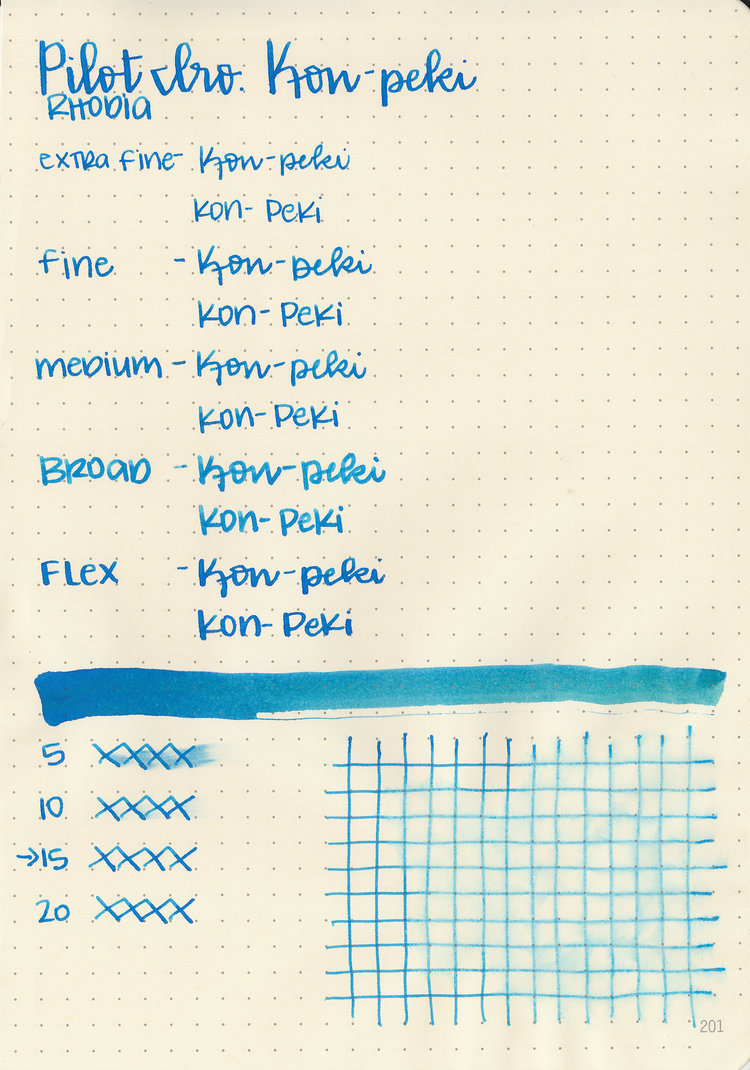 Pilot Iro. Kon-peki
RHODIA
extra fine- Kon-peki
Kon-Peki
fine - Kon-peki
Kon-Peki
medium - Kon-peki
Kon-Peki
BROAD - Kon-peki
Kon-Peki
FLex - Kon-peki
Kon-Peki
5 XXXX
10 XXXX
→15 XXXX
20 XXXX
201